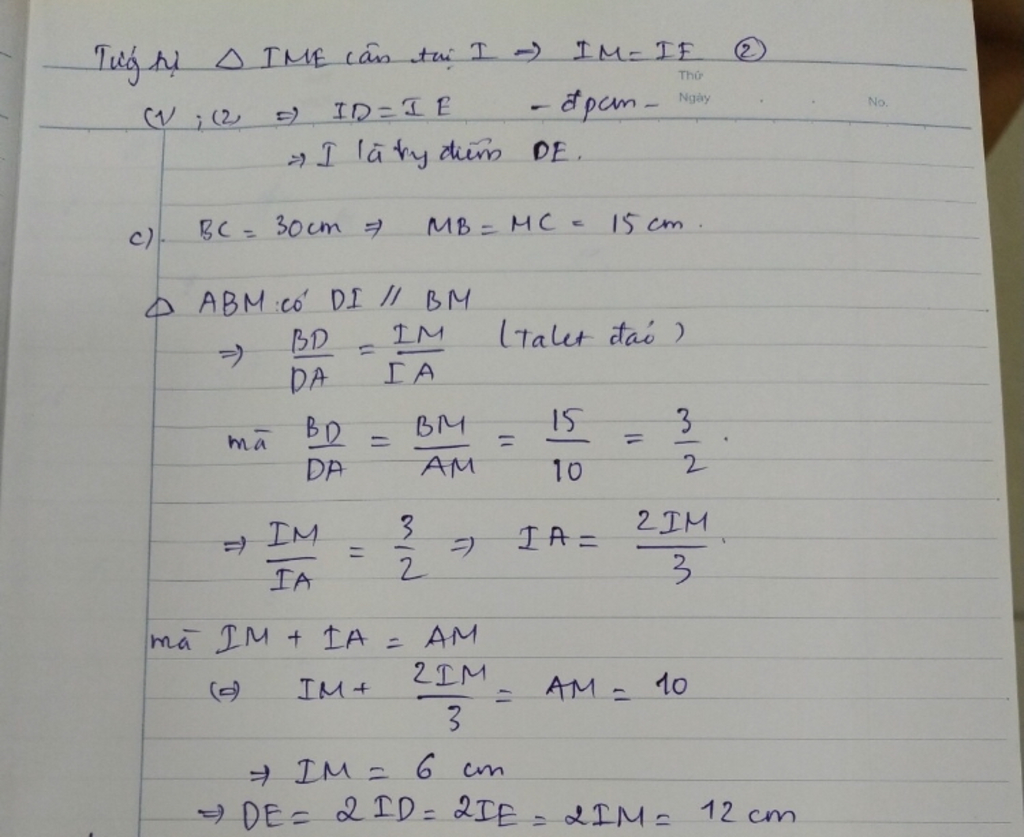 Tương tự Δ IME cân tại I ⇒ IM = IE ②
Thứ
Ngày
No.
(1) ; (2) ⇒ ID = IE - đpcm -
⇒ I là trg điểm DE.
c). BC = 30cm ⇒ MB = MC = 15 cm.
Δ ABM có DI // BM
⇒ BD/DA = IM/IA (Talet đảo)
mà BD/DA = BM/AM = 15/10 = 3/2.
⇒ IM/IA = 3/2 ⇒ IA = 2IM/3.
mà IM + IA = AM
(⇒) IM + 2IM/3 = AM = 10
⇒ IM = 6 cm
⇒ DE = 2ID = 2IE = 2IM = 12 cm